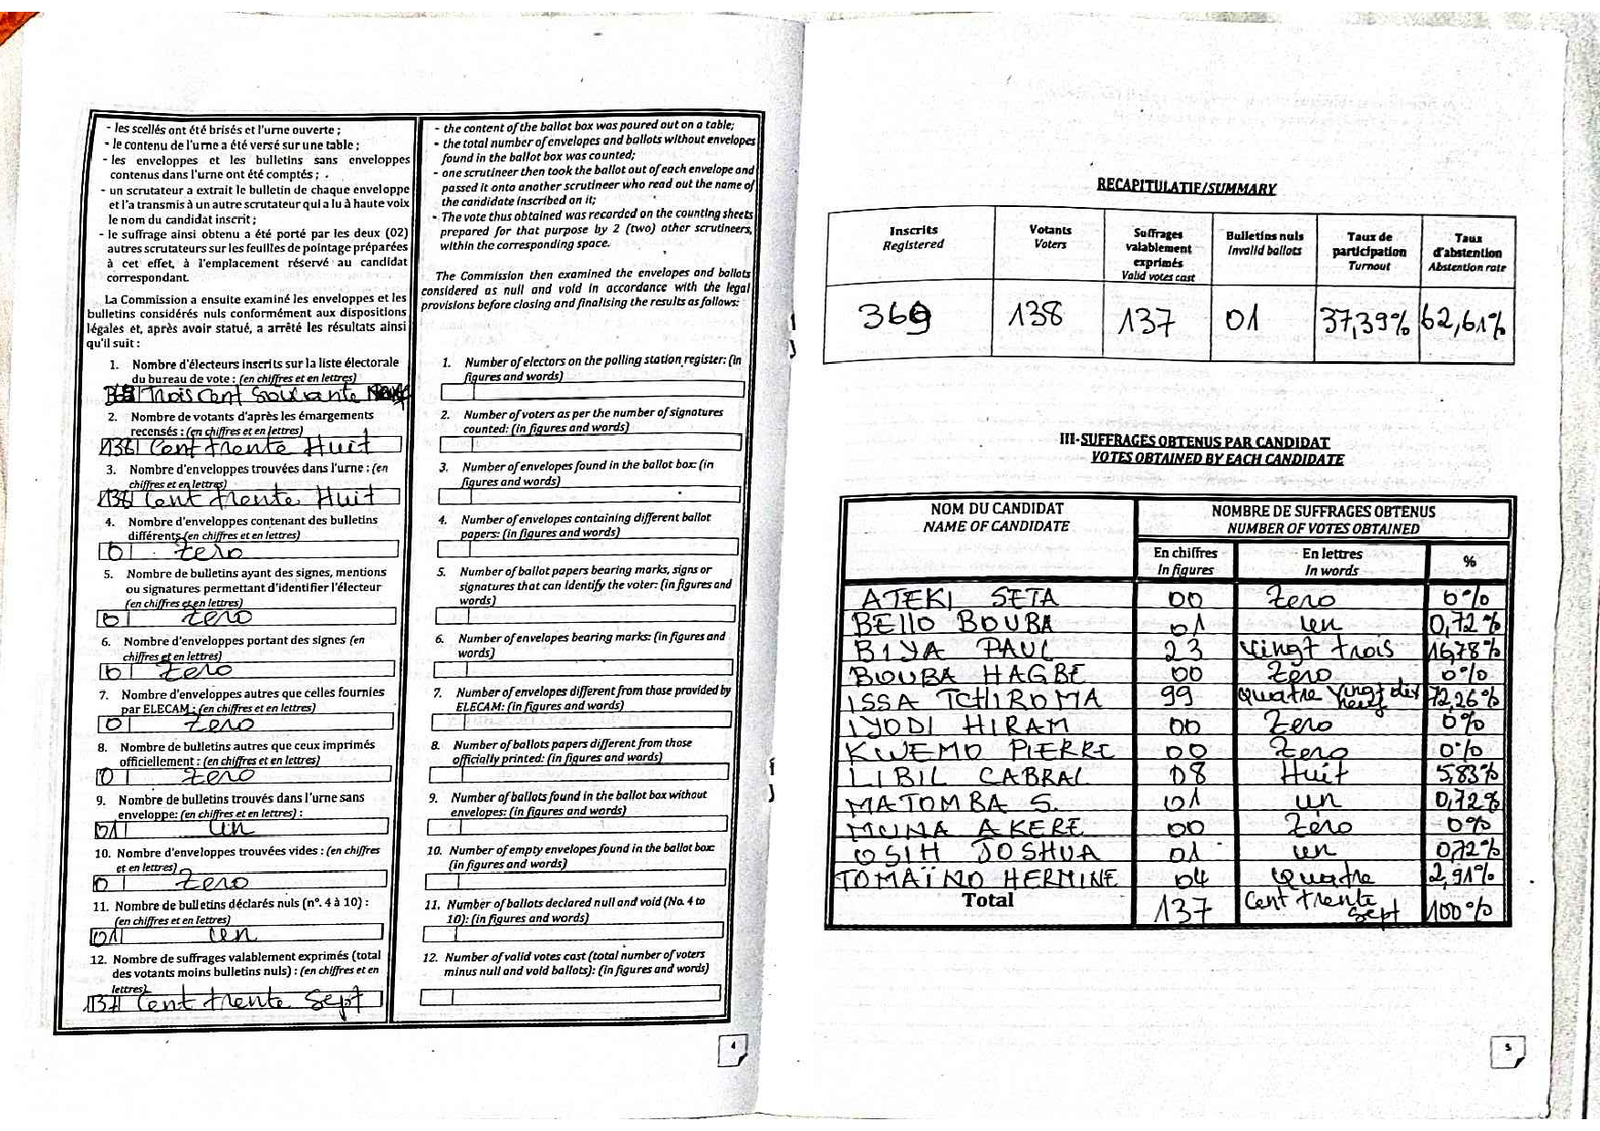 - les scellés ont été brisés et l'urne ouverte ;
- le contenu de l'urne a été versé sur une table ;
- les enveloppes et les bulletins sans enveloppes
contenus dans l'urne ont été comptés ;
- un scrutateur a extrait le bulletin de chaque enveloppe
et l'a transmis à un autre scrutateur qui a lu à haute voix
le nom du candidat inscrit ;
- le suffrage ainsi obtenu a été porté par les deux (02)
autres scrutateurs sur les feuilles de pointage préparées
à cet effet, à l'emplacement réservé au candidat
correspondant.
La Commission a ensuite examiné les enveloppes et les
bulletins considérés nuls conformément aux dispositions
légales et, après avoir statué, a arrêté les résultats ainsi
qu'il suit :
1. Nombre d'électeurs inscrits sur la liste électorale
du bureau de vote : (en chiffres et en lettres)
Trois Cent Soixante
2. Nombre de votants d'après les émargements
recensés : (en chiffres et en lettres)
138 Cent trente Huit
3. Nombre d'enveloppes trouvées dans l'urne : (en
chiffres et en lettres)
138 Cent trente Huit
4. Nombre d'enveloppes contenant des bulletins
différents (en chiffres et en lettres)
0 Zero
5. Nombre de bulletins ayant des signes, mentions
ou signatures permettant d'identifier l'électeur
(en chiffres et en lettres)
0 Zero
6. Nombre d'enveloppes portant des signes (en
chiffres et en lettres)
0 Zero
7. Nombre d'enveloppes autres que celles fournies
par ELECAM : (en chiffres et en lettres)
0 Zero
8. Nombre de bulletins autres que ceux imprimés
officiellement : (en chiffres et en lettres)
0 Zero
9. Nombre de bulletins trouvés dans l'urne sans
enveloppe: (en chiffres et en lettres) :
01 un
10. Nombre d'enveloppes trouvées vides : (en chiffres
et en lettres)
0 Zero
11. Nombre de bulletins déclarés nuls (n°. 4 à 10) :
(en chiffres et en lettres)
01 un
12. Nombre de suffrages valablement exprimés (total
des votants moins bulletins nuls) : (en chiffres et en
lettres)
137 Cent trente Sept
- the content of the ballot box was poured out on a table;
- the total number of envelopes and ballots without envelopes
found in the ballot box was counted;
- one scrutineer then took the ballot out of each envelope and
passed it onto another scrutineer who read out the name of
the candidate inscribed on it;
- The vote thus obtained was recorded on the counting sheets
prepared for that purpose by 2 (two) other scrutineers,
within the corresponding space.
The Commission then examined the envelopes and ballots
considered as null and void in accordance with the legal
provisions before closing and finalising the results as follows:
1. Number of electors on the polling station register: (in
figures and words)
2. Number of voters as per the number of signatures
counted: (in figures and words)
3. Number of envelopes found in the ballot box: (in
figures and words)
4. Number of envelopes containing different ballot
papers: (in figures and words)
5. Number of ballot papers bearing marks, signs or
signatures that can identify the voter: (in figures and
words)
6. Number of envelopes bearing marks: (in figures and
words)
7. Number of envelopes different from those provided by
ELECAM: (in figures and words)
8. Number of ballots papers different from those
officially printed: (in figures and words)
9. Number of ballots found in the ballot box without
envelopes: (in figures and words)
10. Number of empty envelopes found in the ballot box:
(in figures and words)
11. Number of ballots declared null and void (No. 4 to
10): (in figures and words)
12. Number of valid votes cast (total number of voters
minus null and void ballots): (in figures and words)
4
RECAPITULATIF/SUMMARY
Inscrits Registered Votants Voters Suffrages valablement exprimés Valid votes cast Bulletins nuls Invalid ballots Taux de participation Turnout Taux d'abstention Abstention rate
369 138 137 01 37,39% 62,61%
III-SUFFRAGES OBTENUS PAR CANDIDAT
VOTES OBTAINED BY EACH CANDIDATE
NOM DU CANDIDAT NOMBRE DE SUFFRAGES OBTENUS
NAME OF CANDIDATE NUMBER OF VOTES OBTAINED
En chiffres En lettres %
In figures In words
ATEKI SETA 00 Zero 0%
BELLO BOUBA 01 un 0,72%
BIYA PAUL 23 Vingt trois 16,78%
BOUBA HAGBE 00 Zero 0%
ISSA TCHIROMA 99 Quatre Vingt dix neuf 72,26%
IYODI HIRAM 00 Zero 0%
KWEMO PIERRE 00 Zero 0%
LIBIL CABRAL 08 Huit 5,83%
MATOMBA S. 01 un 0,72%
MUNA AKERE 00 Zero 0%
OSIH JOSHUA 01 un 0,72%
TOMAÏNO HERMINE 04 Quatre 2,91%
Total 137 Cent trente sept 100%
5